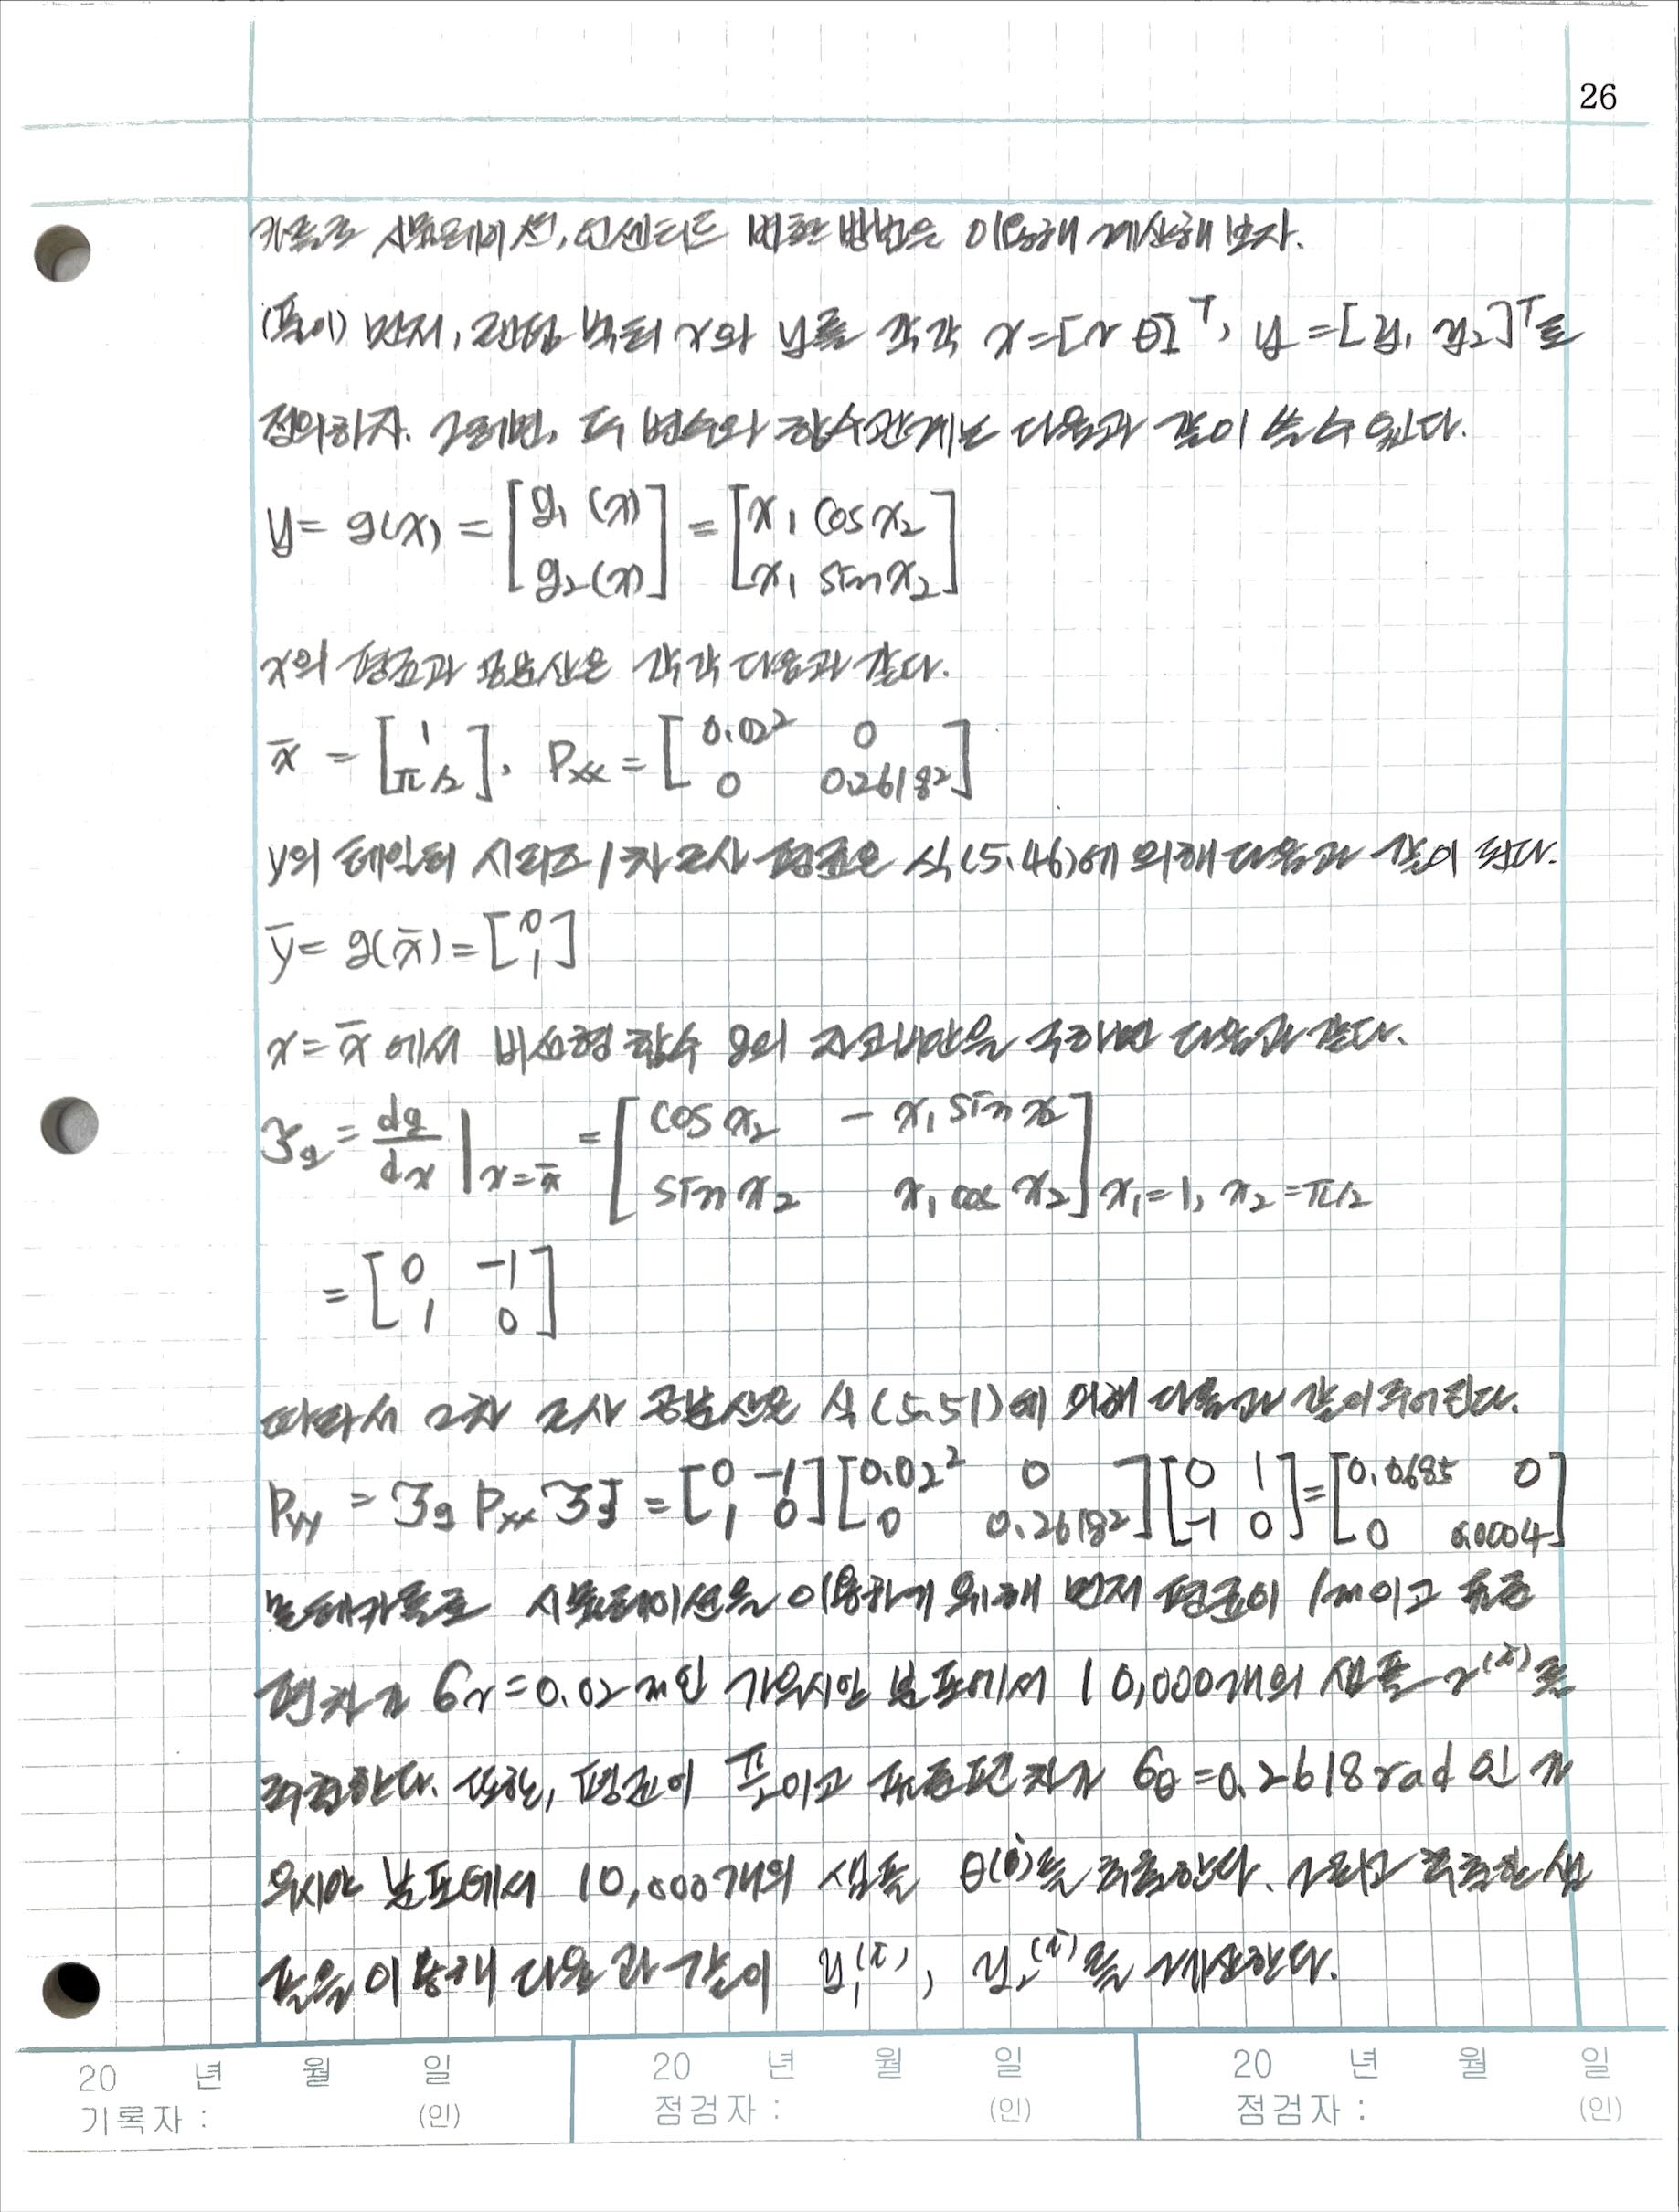 26
카를로 시뮬레이션, 언센티드 변환 방법을 이용해 계산해 보자.
(풀이) 먼저, 랜덤 벡터 x와 y를 각각 x=[r θ]ᵀ, y=[y₁ y₂]ᵀ로
정의하자. 그러면, 두 변수의 함수관계는 다음과 같이 쓸 수 있다.
y = g(x) = [g₁(x) ; g₂(x)] = [x₁ cos x₂ ; x₁ sin x₂]
x의 평균과 공분산은 각각 다음과 같다.
x̄ = [1 ; π/2], Pxx = [0.02² 0 ; 0 0.2618²]
y의 테일러 시리즈 1차 근사 평균은 식(5.46)에 의해 다음과 같이 된다.
ȳ = g(x̄) = [0 ; 1]
x = x̄ 에서 비선형 함수 g의 자코비안을 구하면 다음과 같다.
Jg = dg/dx |x=x̄ = [cos x₂ -x₁ sin x₂ ; sin x₂ x₁ cos x₂] x₁=1, x₂=π/2
= [0 -1 ; 1 0]
따라서 2차 근사 공분산은 식(5.51)에 의해 다음과 같이 주어진다.
Pyy = Jg Pxx Jgᵀ = [0 -1 ; 1 0] [0.02² 0 ; 0 0.2618²] [0 1 ; -1 0] = [0.0685 0 ; 0 0.0004]
몬테카를로 시뮬레이션을 이용하기 위해 먼저 평균이 1m이고 표준
편차가 σr=0.02m인 가우시안 분포에서 10,000개의 샘플 r⁽ⁱ⁾를
추출한다. 또한, 평균이 π/2이고 표준편차가 σθ=0.2618rad인 가
우시안 분포에서 10,000개의 샘플 θ(i)를 추출한다. 그리고 추출한 샘
플을 이용해 다음과 같이 y₁⁽ⁱ⁾, y₂⁽ⁱ⁾를 계산한다.
20 년 월 일 20 년 월 일 20 년 월 일
기록자 : (인) 점검자 : (인) 점검자 : (인)